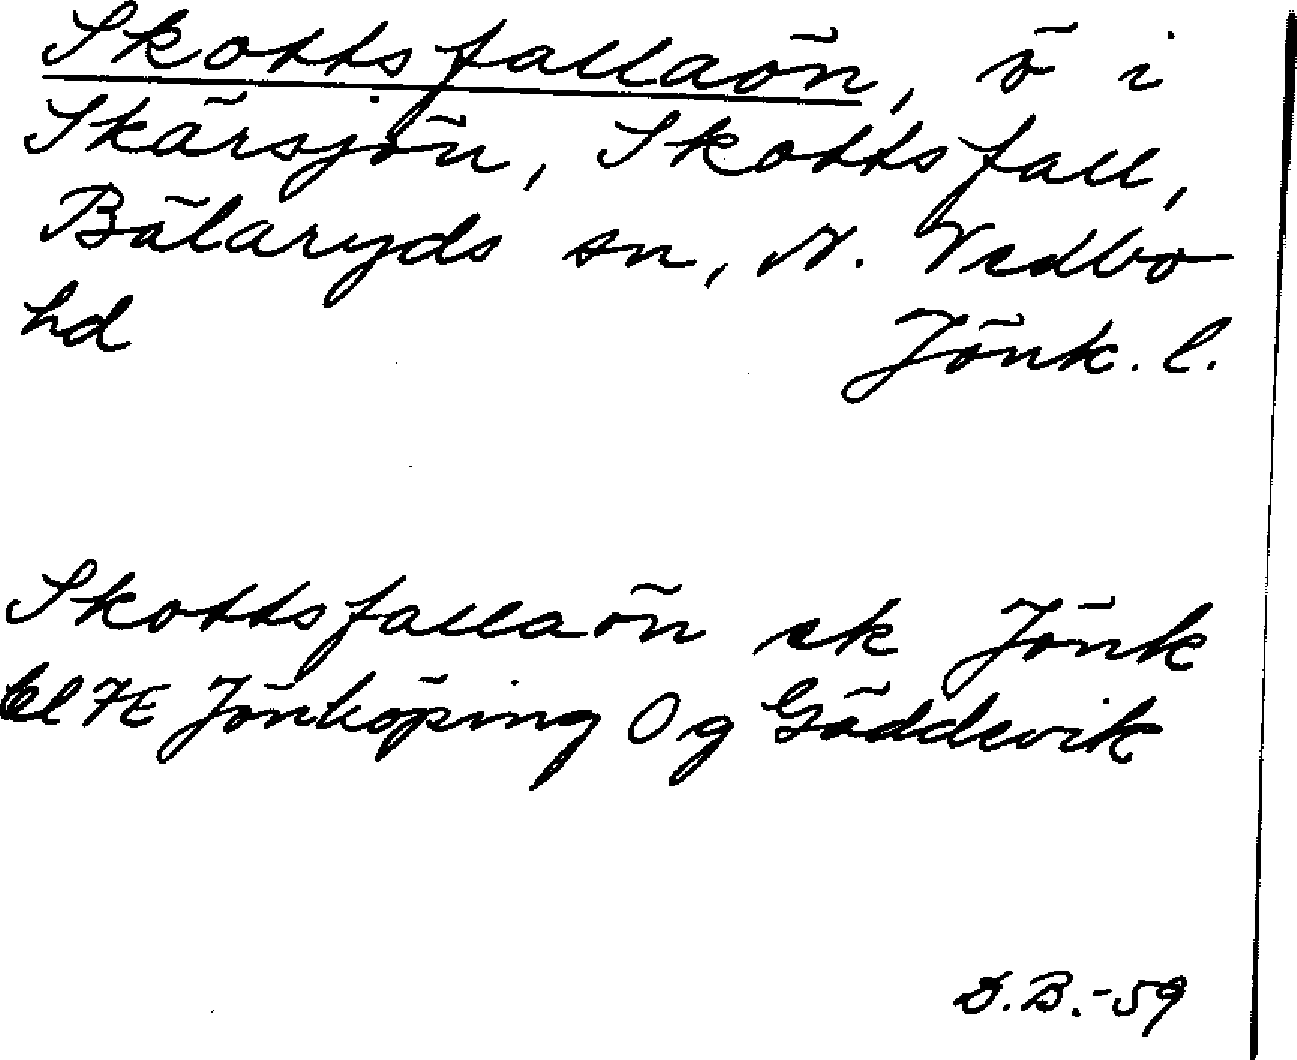 Skottsfallaön, ö i
Skärsjön, Skottsfall,
Bälaryds sn, N. Vedbo
hd Jönk. l.
Skottsfallaön ek Jönk
bl 7E Jönköping Og Gäddevik
D.B.-59